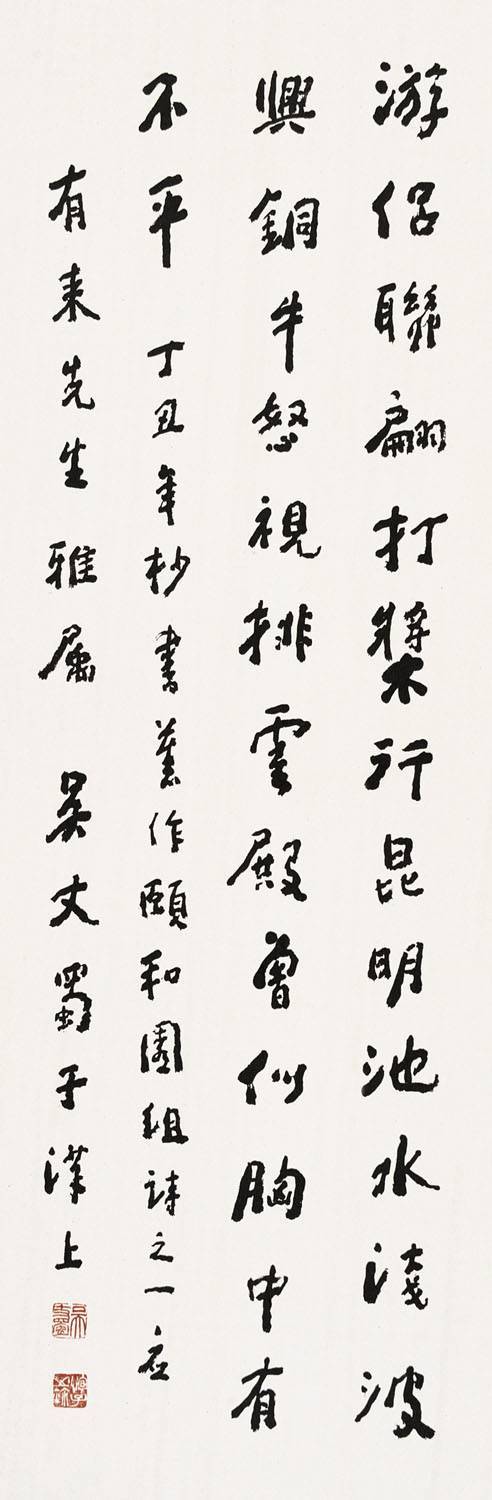 游侣聯翩打槳行昆明池水淺波
興銅牛怒視排雲殿曾似胸中有
不平 丁丑年杪書舊作頤和園組詩之一應
有来先生雅属 吴丈蜀于漢上